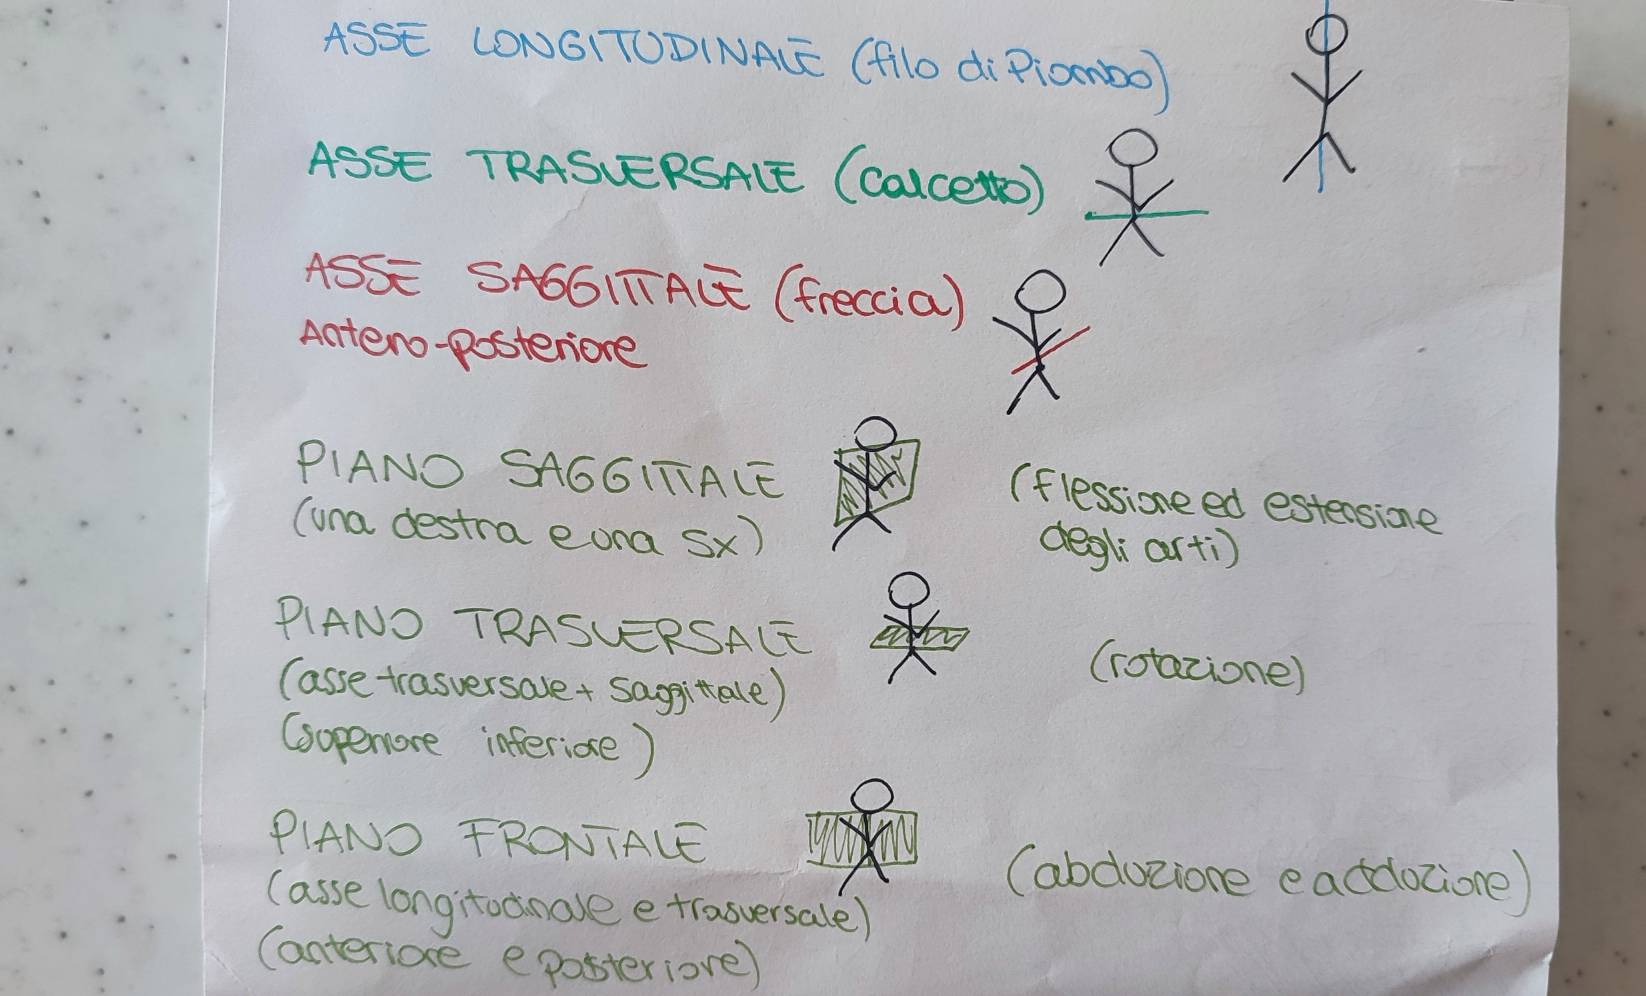 ASSE LONGITUDINALE (filo di Piombo)
ASSE TRASVERSALE (calcetto)
ASSE SAGGITTALE (freccia)
Antero-posteriore
PIANO SAGGITTALE
(una destra e una sx)
(flessione ed estensione
degli arti)
PIANO TRASVERSALE
(asse trasversale + saggittale)
(superiore inferiore)
(rotazione)
PIANO FRONTALE
(asse longitudinale e trasversale)
(anteriore e posteriore)
(abduzione e adduzione)